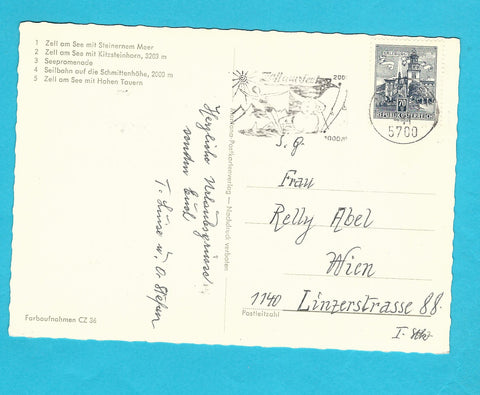 1 Zell am See mit Steinernem Meer
2 Zell am See mit Kitzsteinhorn, 3203 m
3 Seepromenade
4 Seilbahn auf die Schmittenhöhe, 2000 m
5 Zell am See mit Hohen Tauern
Herzliche Urlaubsgrüsse
senden Euch
T. Luise u. O. Stefan
Farbaufnahmen CZ 36
Postkartenverlag — Nachdruck verboten
REPUBLIK ÖSTERREICH
70
5700
S. g.
Frau
Relly Abel
Wien
1140 Linzerstrasse 88.
Postleitzahl